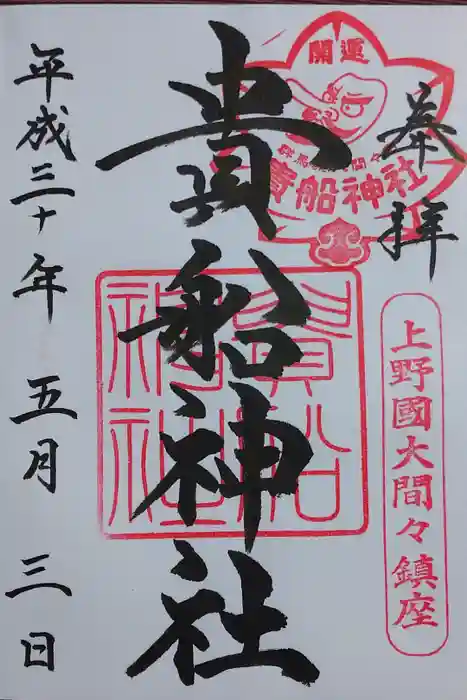 奉拝
開運
群馬県大間々
貴船神社
上野國大間々鎮座
貴船神社
貴船神社
平成三十年五月三日